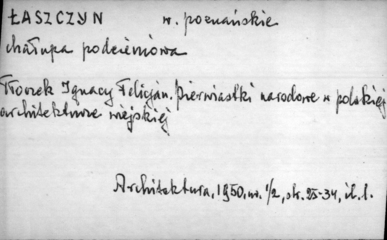 ŁASZCZYN w. poznańskie
chałupa podcieniowa
Tłoczek Ignacy Felicjan. Pierwiastki narodowe w polskiej
architekturze wiejskiej
Architektura, 1950, nr. 1/2, str. 25-34, il. 1.